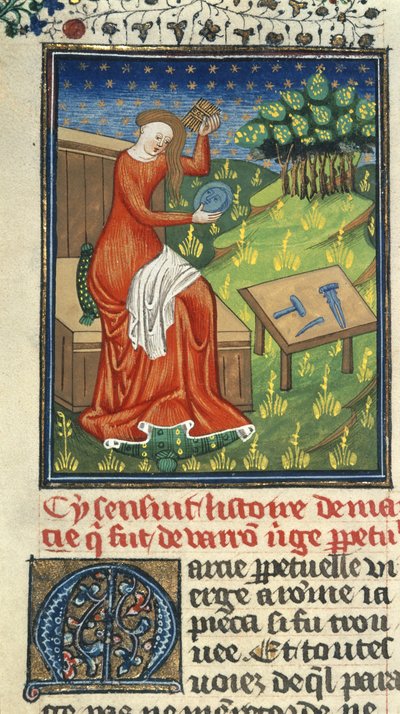 Cy sensuit listoire de mar
cie q̃ fut de varrõ v̾ge p̱petu
Marcie p̱petuelle vi
erge a rõme ia
pieca si fu trou
uee. Et toutes
uoiez de q̃l para